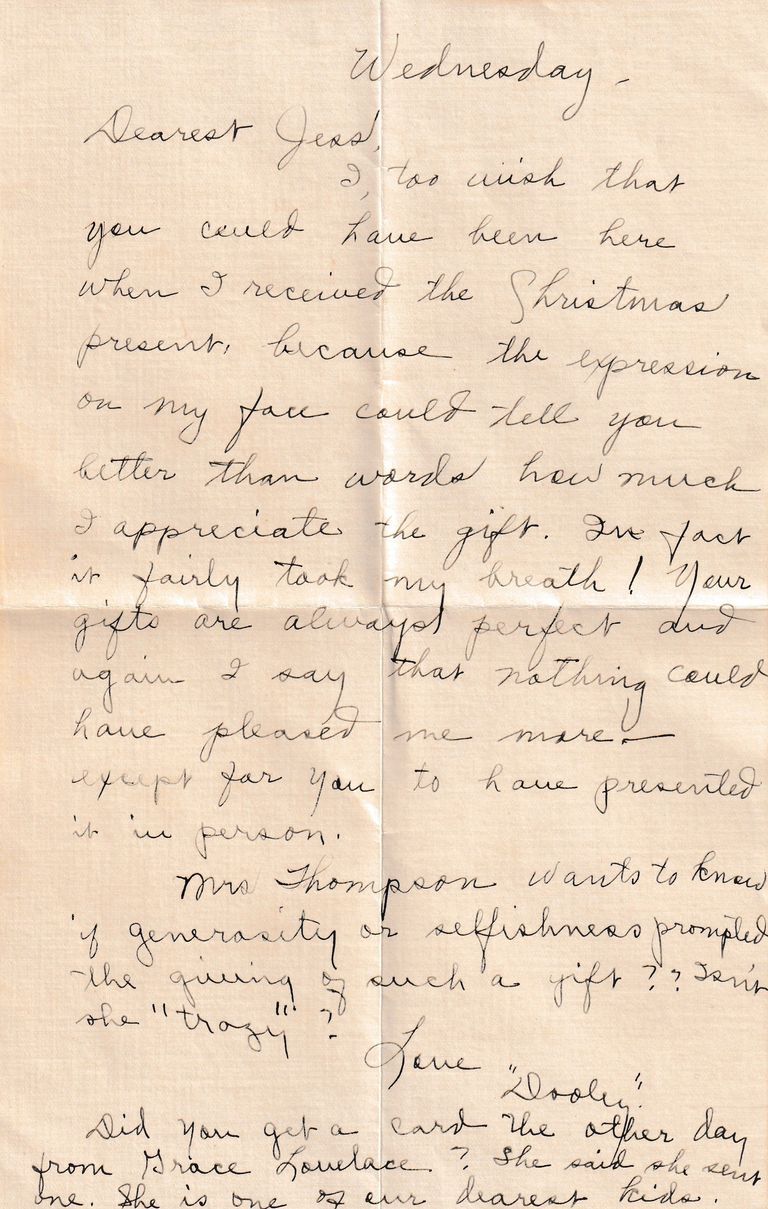 Wednesday -
Dearest Jess,
I, too wish that
you could have been here
when I received the Christmas
present, because the expression
on my face could tell you
better than words how much
I appreciate the gift. In fact
it fairly took my breath! Your
gifts are always perfect and
again I say that nothing could
have pleased me more. —
except for you to have presented
it in person.
Mrs Thompson wants to know
if generosity or selfishness prompted
the giving of such a gift?? Isn't
she "trazy"?
Love
"Dooley".
Did you get a card the other day
from Grace Lovelace? She said she sent
one. She is one of our dearest kids.